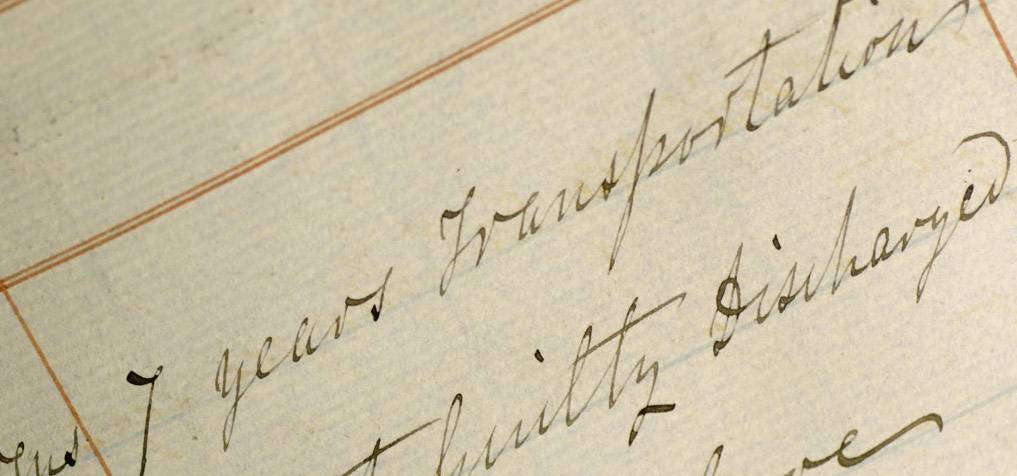 7 years Transportation
Guilty Discharged